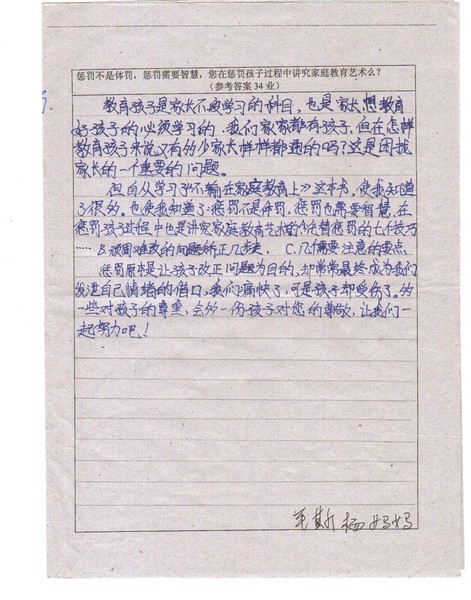 惩罚不是体罚，惩罚需要智慧，您在惩罚孩子过程中讲究家庭教育艺术么？
（参考答案34业）
教育孩子是家长不须学习的科目，也是家长想教育
好孩子的必须学习的，我们家家都有孩子，但在怎样
教育孩子来说又有的少家长样样都通的吗？这是困扰
家长的一个重要的问题。
但自从学习了《不输在家庭教育上》这本书，使我知道
了很多。也使我知道了惩罚不是体罚，惩罚也需要智慧，在
惩罚孩子过程中也是讲究家庭教育艺术的 代替惩罚的七个技巧
…… B.顽固难改的问题矫正几步走、C.几个需要注意的要点
惩罚原本是让孩子改正问题为目的，却常常最终成为我们
发泄自己情绪的借口，我们痛快了，可是孩子却受伤了。多
一些对孩子的尊重，会多一份孩子对您的尊敬，让我们一
起努力吧！
毛斯杨妈妈